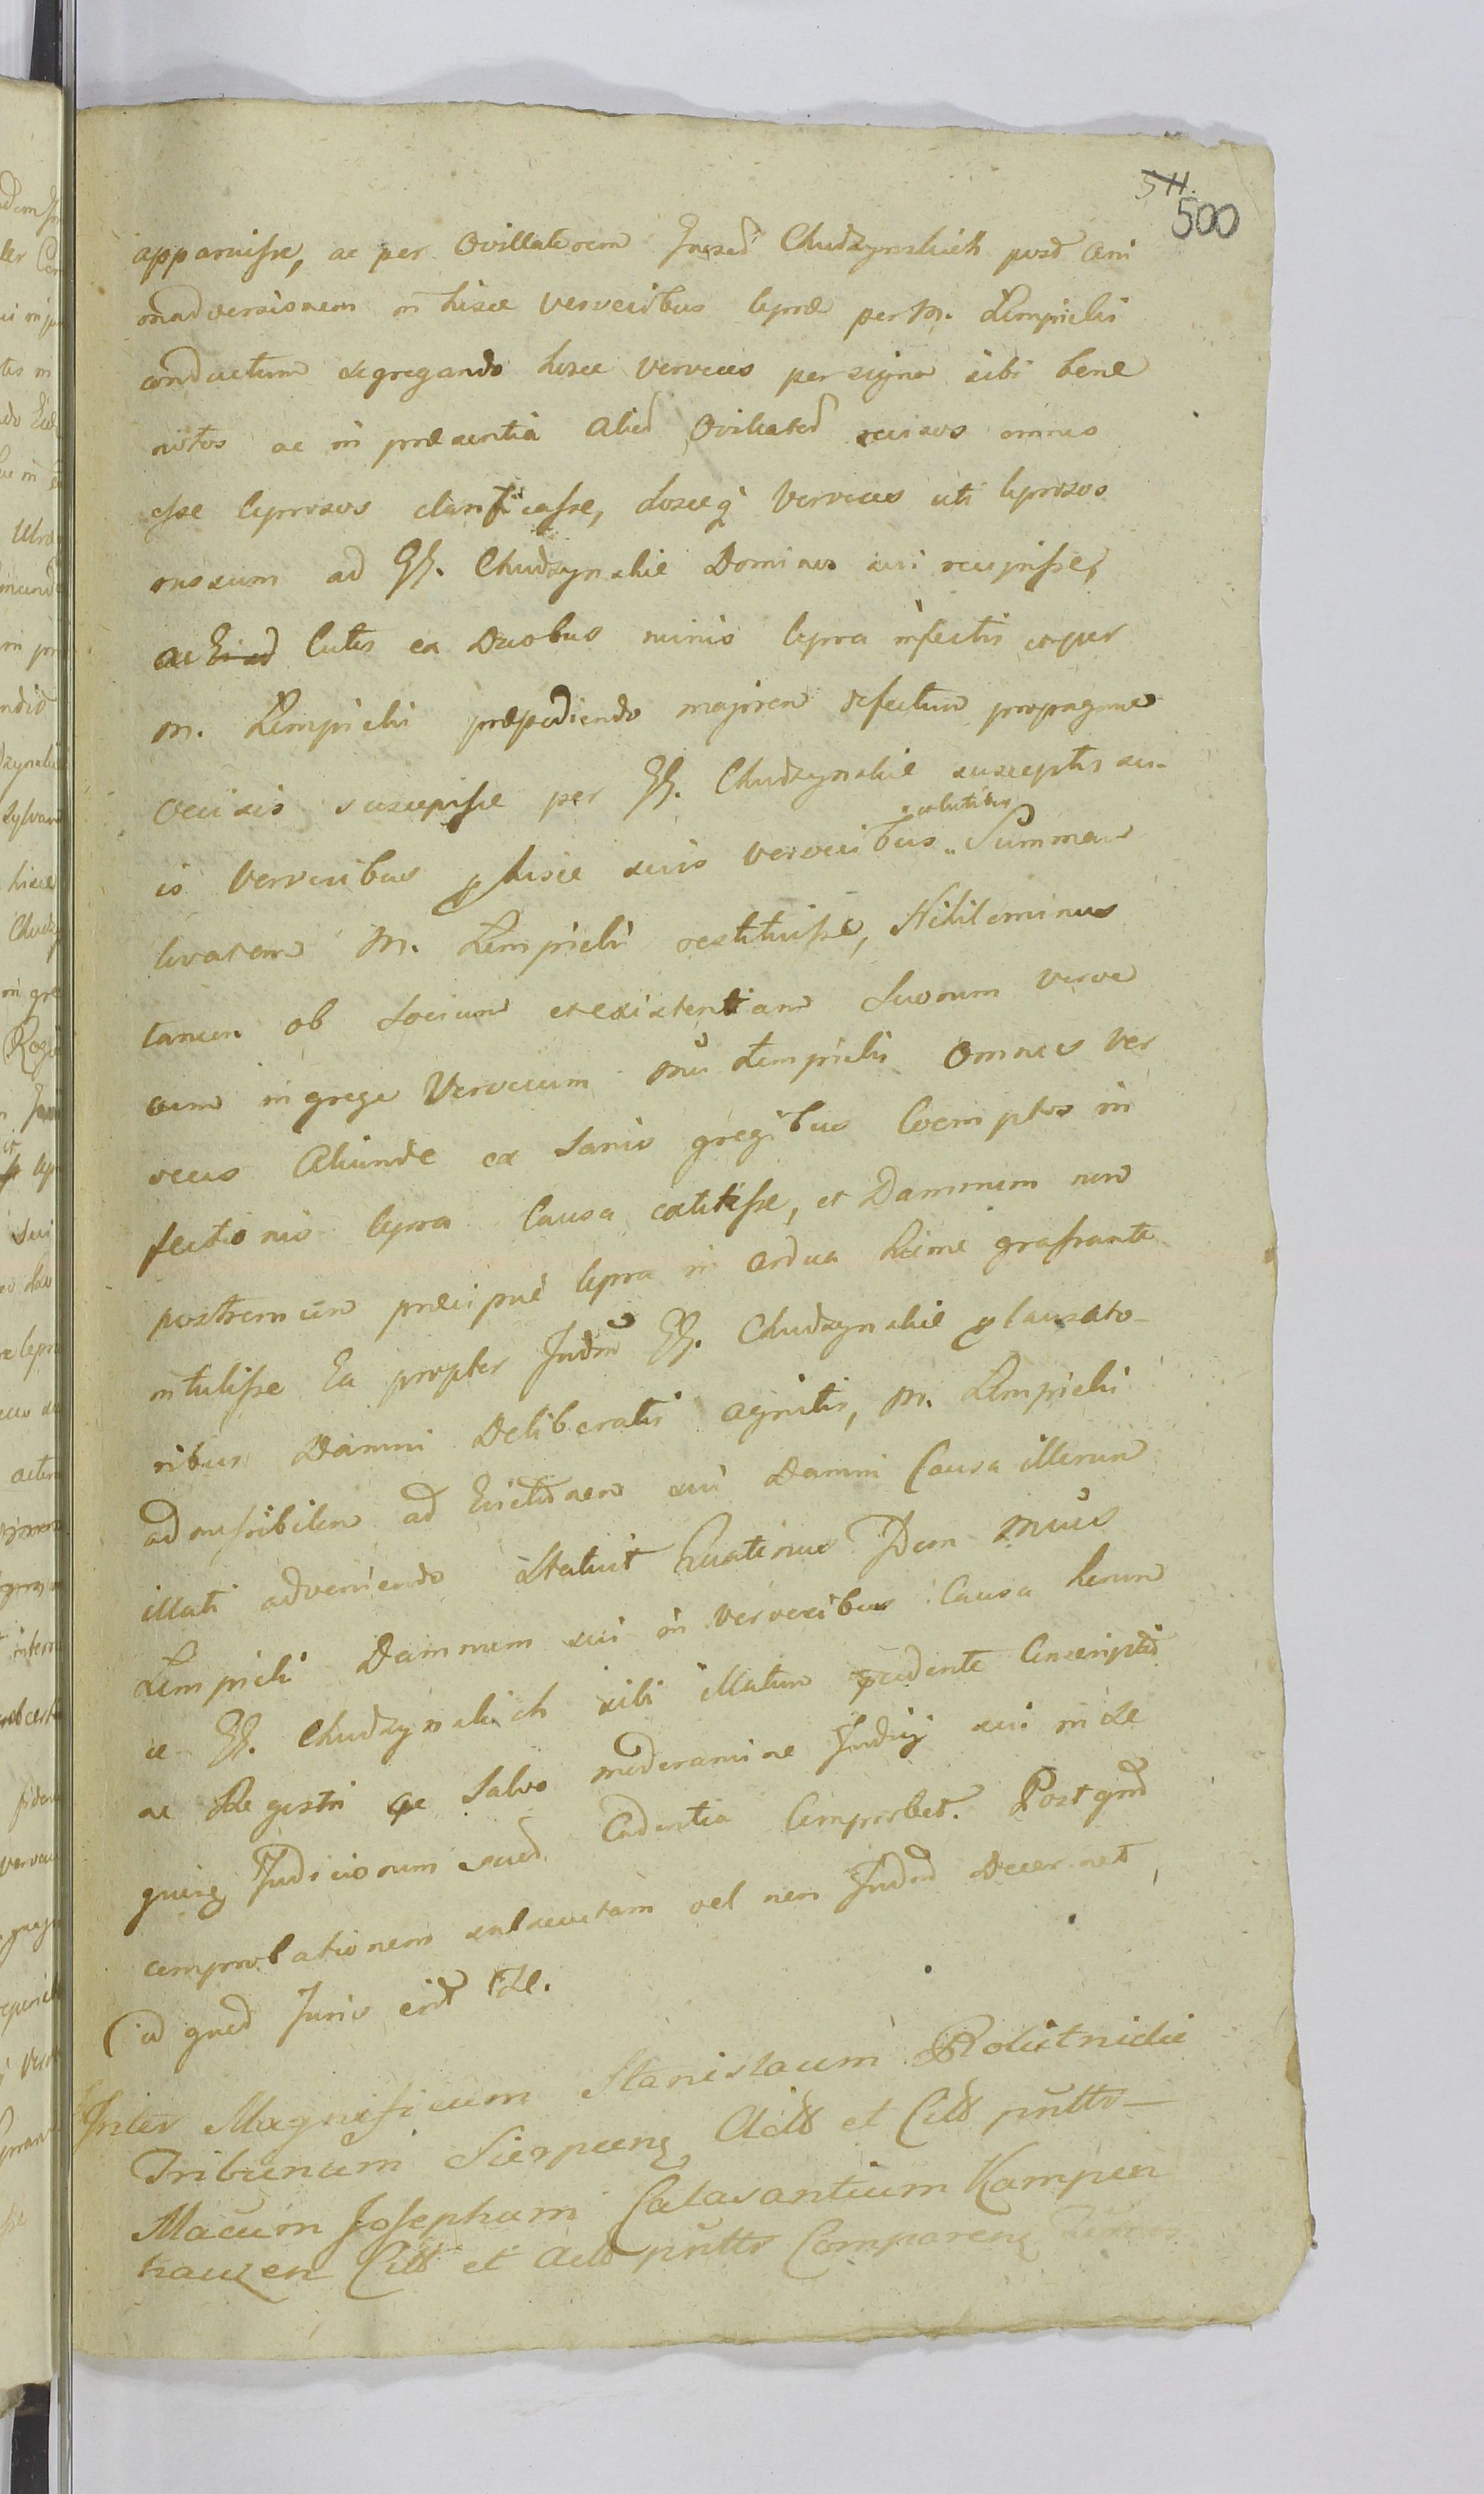 511.
500
apparuisse, ac per Ovillatorem Chudzynskich post Ani
madversionem in hisce Vervecibus lepræ per M. Lempicki
conductum segregando hosce verveces per signa sibi bene
notos ac in præsentia Aliorum scissos omnes
esse leprosos clarificasse, hosceq̀ Verveces uti leprosos
rursum ad GG. Chudzynskie Dominos sui recepisse,
ac cutes ex Duobus nimis lepra infectis et per
M. Lempicki præpediendo majorem defectum
occisis suscepisse per GG. Chudzynskie susceptis su-
is Vervecibus p hisce suis vervecibus solutam Summam
M. Lempicki restituisse, Nihilominus
tamen ob socium et existentiam Suorum verve
cum in grege Vervecum Mci Lempicki Omnes ver
veces Aliunde ex Sanis gregibus Coemptos in
fectionis lepra Causa extitisse, et Damnum non
postremum præcipuè lepra in ardua hieme grassante
intulisse Ea propter Judm GG. Chudzynskie p Causato-
ribus Damni Deliberatis agnitis, M. Lempicki
admissibilem ad Evictionem sui Damni Causa illorum
illati adveniendo Statuit Quatinus Idem Mcus
Lempicki Damnum sui in Vervecibus Causa horum
ce GG. Chudzynskich sibi illatum Conscriptio
ac Regestri ac Salvo moderamine Judicij sui in Se
quenq Judiciorum Cadentia Comprobet. Post qm
comprobationem subsecutam vel non Judm Decernet,
id quod Juris erit Etc.
Inter Magnificum Stanislaum Rościtnidie
Tribunum Sierpcenę Actt et Citt pntto-
Macum Josephum Calasantium Kampen
hauzen Citt et Actt pntto Comparenę